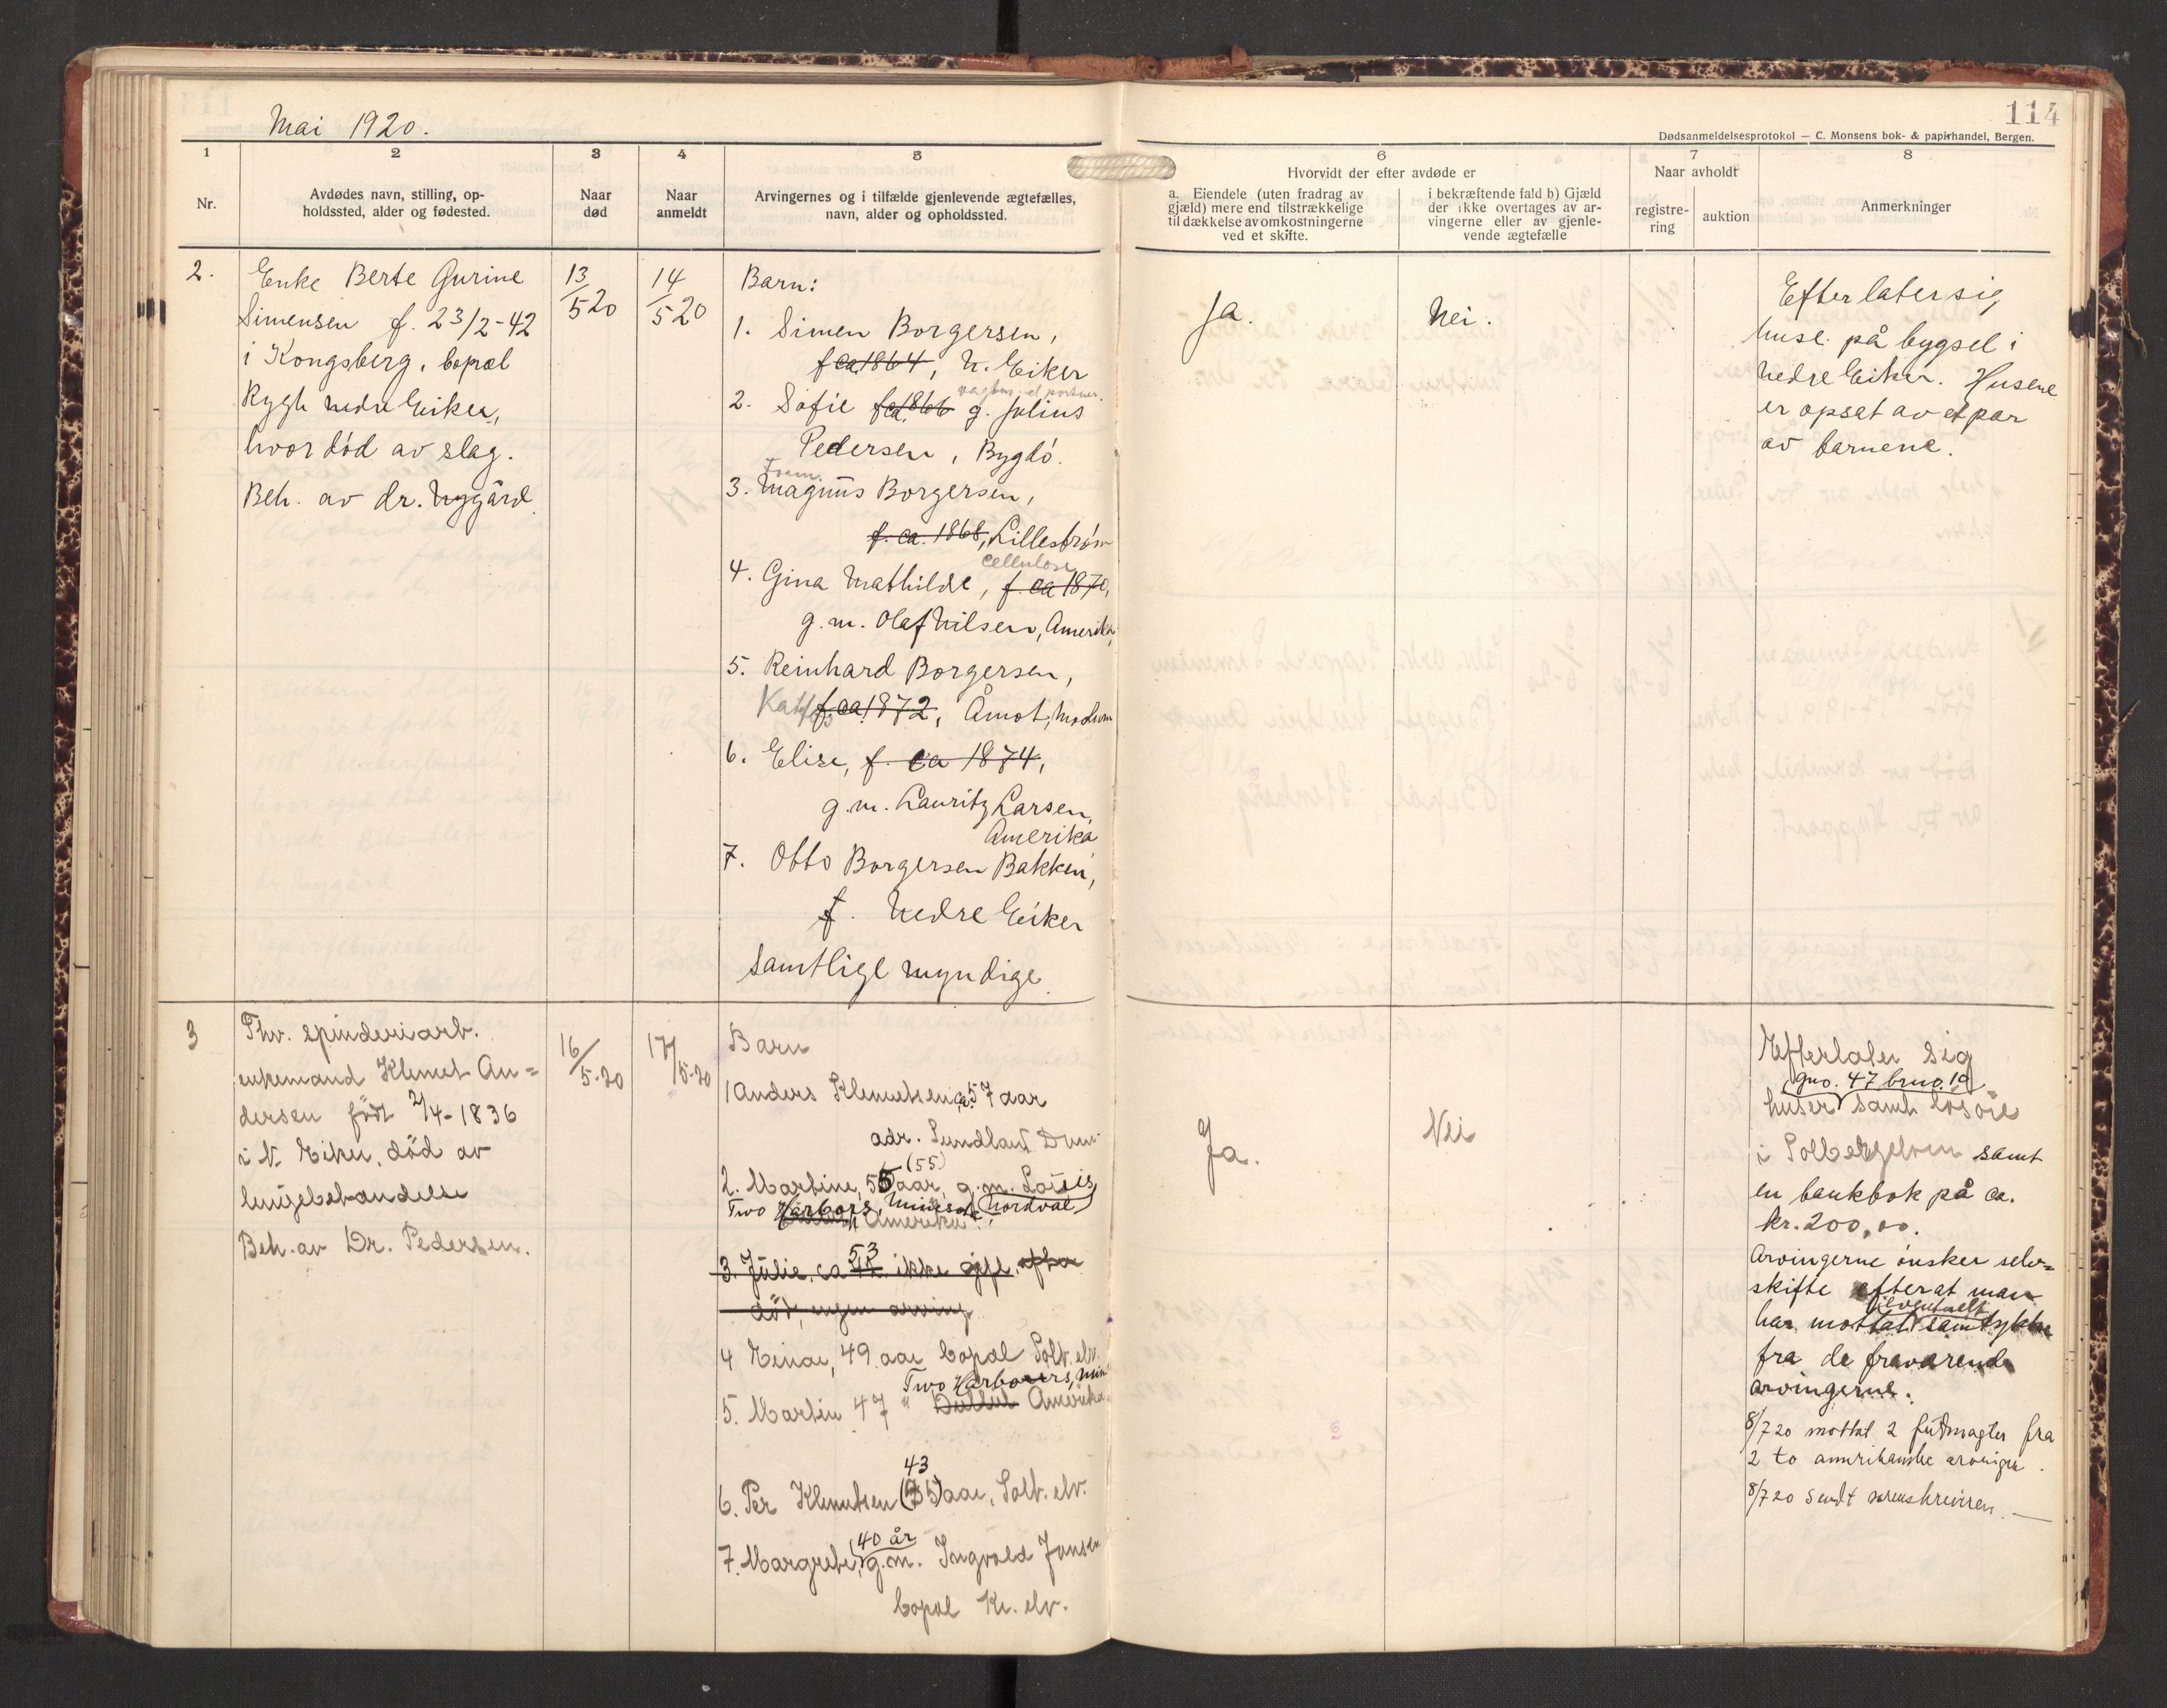 Mai 1920.
114
Dødsanmeldelsesprotokol — C. Monsens bok- & papirhandel, Bergen.
1
2
3
4
5
6
7
8
Nr.
Avdødes navn, stilling, op-
holdssted, alder og fødested.
Naar
død
Naar
anmeldt
Arvingernes og i tilfælde gjenlevende ægtefælles,
navn, alder og opholdssted.
Hvorvidt der efter avdøde er
a. Eiendele (uten fradrag av
gjæld) mere end tilstrækkelige
til dækkelse av omkostningerne
ved et skifte.
i bekræftende fald b) Gjæld
der ikke overtages av ar-
vingerne eller av gjenle-
vende ægtefælle
Naar avholdt
registre-
ring
auktion
Anmerkninger
2.
Enke Berte Gurine
Simensen f. 23/2-42
i Kongsberg, bopæl
Rygh nedre Eiker,
hvor død av slag.
Beh. av dr. Nygård.
13/5 20
14/5 20
Barn:
1. Simen Borgersen,
f ca 1864, N. Eiker
2. Sofie f ca 1866 g. Julius
Pedersen, Bygdö.
3. Magnus Borgersen,
f. ca. 1868, Lillestrøm
cellulose
4. Gina Mathilde, f. ca 1870,
g.m. Olaf Nilsen, Amerika,
5. Reinhard Borgersen,
Katfos f ca 1872, Åmot, Modum
6. Elise, f. ca 1874,
g.m. Lauritz Larsen,
Amerika
7. Otto Borgersen Bakken,
f. Nedre Eiker
Samtlige myndige.
Ja.
Nei.
Efterlater sig
huse på bygsel i
Nedre Eiker. Husene
er opsat av et par
av barnene.
3
Fhv. spinderiarb.
enkemand Klemet An=
dersen født 2/4-1836
i N. Eiker, død av
lungebetændelse
Beh. av Dr. Pedersen.
16/5-20
17/5-20
Barn
1 Anders Klemetsen ca. 57 aar
adr. Sundland Dram.
(55)
2. Martine, 55 aar, g.m. Louis
Two Harbors, Minesota (Nordval)
Amerika
53
3. Julie, ca ikke gift,
død, ingen arving
4 Einar, 49 aar bopæl Solb. elv.
Two Harbors, Min
5. Martin 47 " Duluth Amerika
43
6. Per Klemetsen (35) aar, Solb. elv.
40 år
7. Margrete, g.m. Ingvald Jansen
bopæl Kr. elv.
Ja.
Nei
Efterlater sig
gno. 47 bruno. 19
huser samt løsøre
i Solbergelven samt
en bankbok på ca.
kr. 200,00.
Arvingerne ønsker selv=
skifte efterat man
eventuelt
har mottat samtykke
fra de fraværende
arvingerne.
8/7 20 mottat 2 fuldmagter fra
2 to amerikanske arvinger.
8/7 20 Sendt sorenskriveren. —